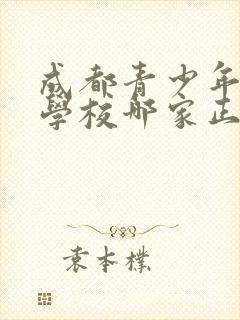 成都青少年
學校哪家正
袁本樸